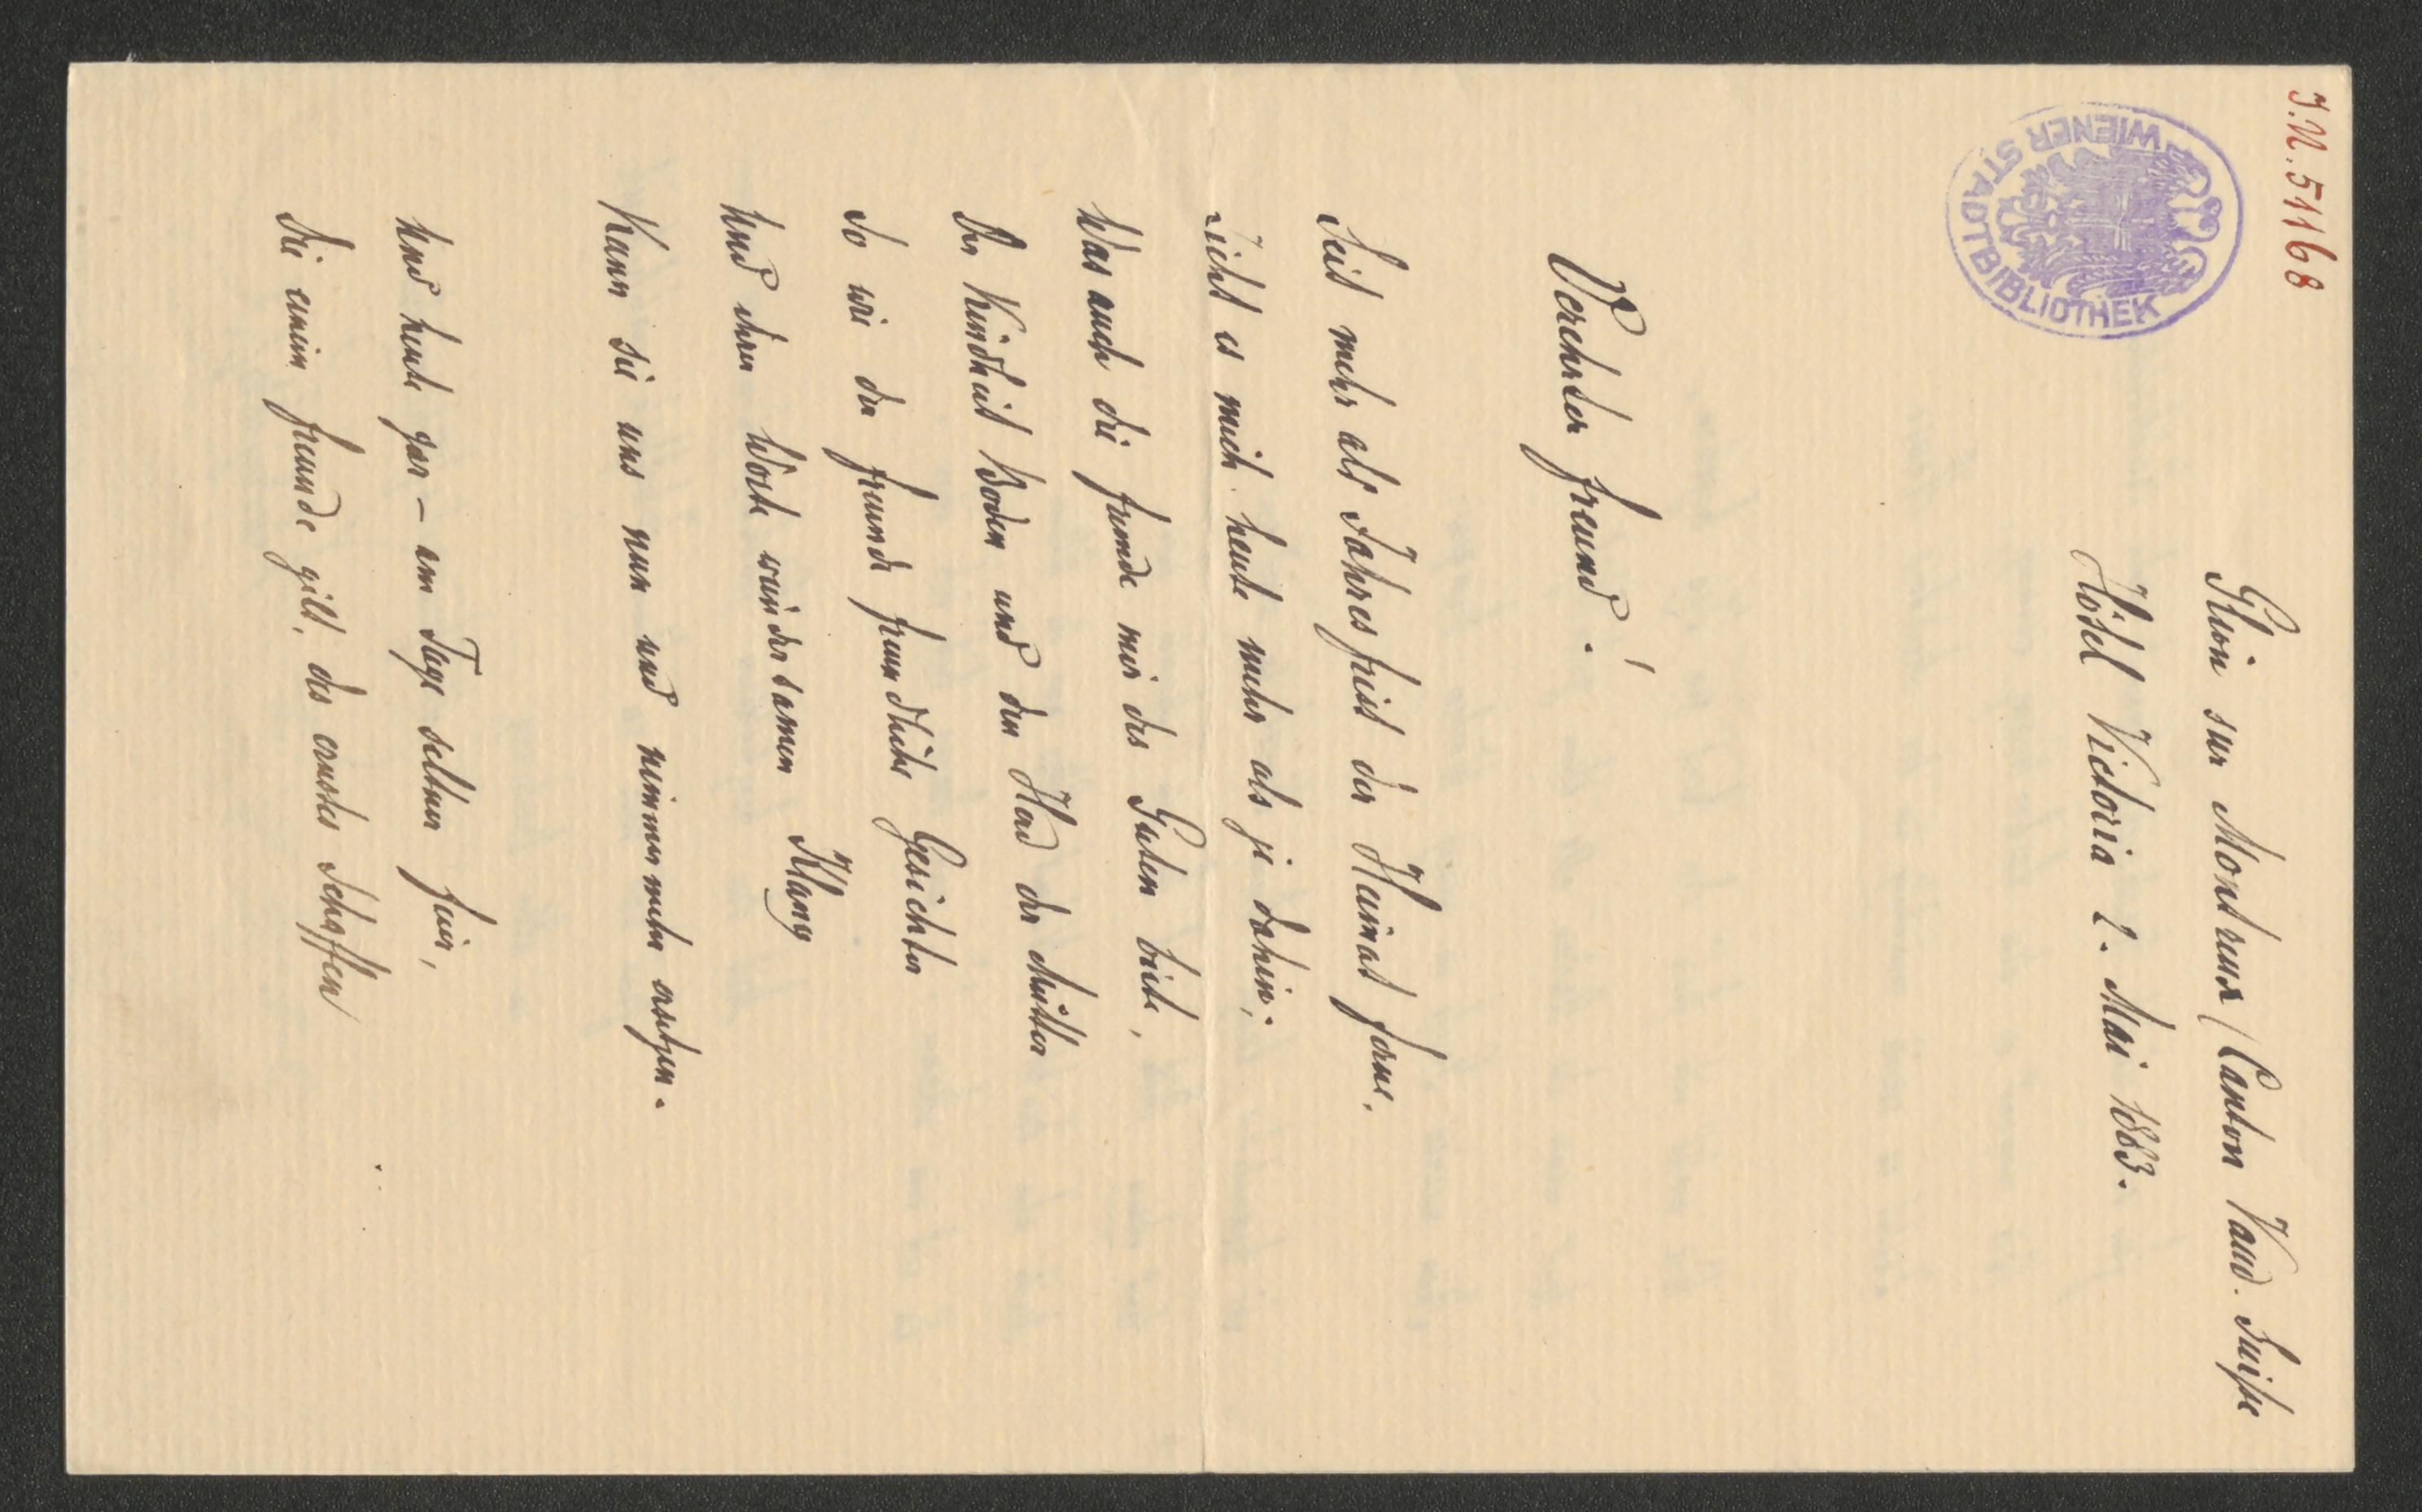 I.N. 51168
WIENER STADTBIBLIOTHEK
Glion sur Montreux (Canton Vaud. Suisse
Hôtel Victoria 2. Mai 1883.
Verehrter Freund!
Seit mehr als Jahresfrist der Heimat ferne,
Zieht es mich heute mehr als je dahin;
Was auch die Fremde mir des Guten biete,
Der Kindheit Boden und den Herd der Mütter
So wie der Freunde freundliche Gesichter
Und ihrer Worte wundersamen Klang
Kann sie uns nun und nimmermehr ersetzen.
Und heute gar – am Tage seltner Feier,
Die einem Freunde gilt, des ernstes Schaffen